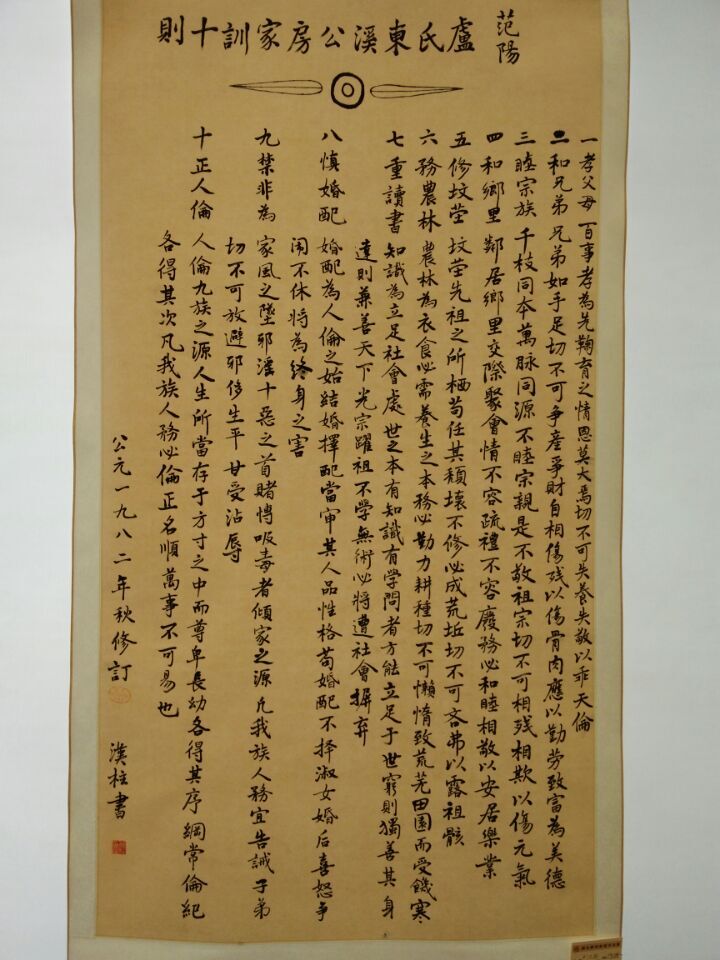 范陽
盧氏東溪公房家訓十則
一孝父母 百事孝為先鞠育之情恩莫大焉切不可失養失敬以乖天倫
二和兄弟 兄弟如手足切不可爭產爭財自相傷残以傷骨肉應以勤劳致富為美德
三睦宗族 千枝同本萬脉同源不睦宗親是不敬祖宗切不可相残相欺以傷元氣
四和鄉里 鄰居鄉里交際聚會情不容疏禮不容廢務必和睦相敬以安居樂業
五修坟茔 坟茔先祖之所栖苟任其頹壞不修必成荒坵切不可吝弗以露祖骸
六務農林 農林為衣食必需養生之本務必勤力耕種切不可懶惰致荒芜田園而受饑寒
七重讀書 知識為立足社會處世之本有知識有学問者方能立足于世窮則獨善其身
達則兼善天下光宗躍祖不学無術必將遭社會摒弃
八慎婚配 婚配為人倫之始結婚擇配當审其人品性格苟婚配不择淑女婚后喜怒争
闹不休将為終身之害
九禁非為 家風之墜邪滛十惡之首賭博吸毒者傾家之源凡我族人務宜告誡子弟
切不可放避邪侈生平甘受沾辱
十正人倫 人倫九族之源人生所當存于方寸之中而尊卑長幼各得其序綱常倫紀
各得其次凡我族人務必倫正名順萬事不可易也
公元一九八二年秋修訂
漢柱書